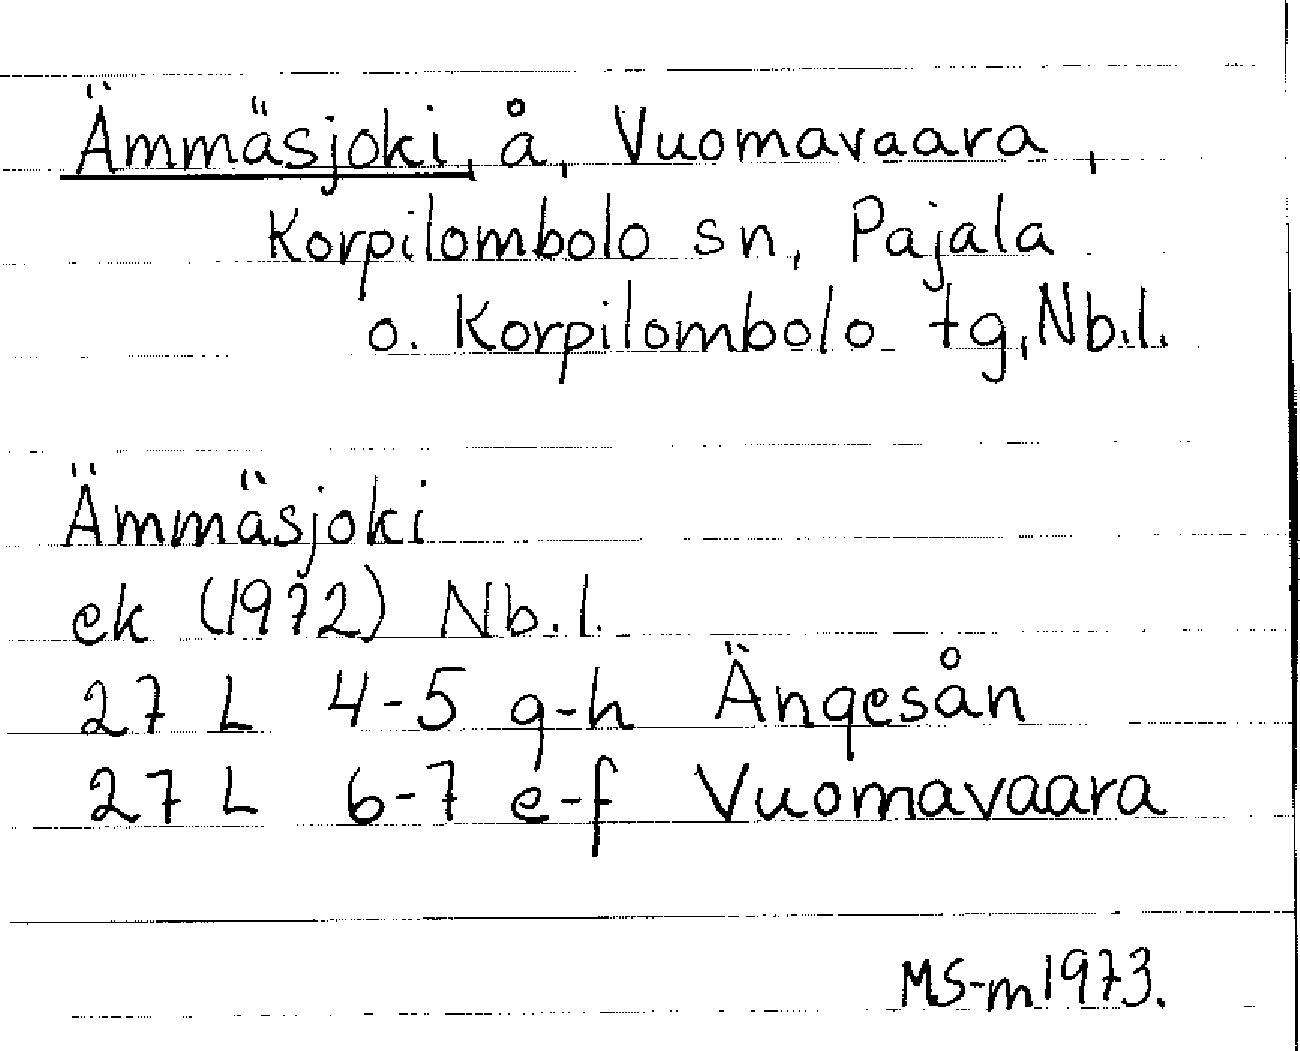 Ämmäsjoki, å, Vuomavaara,
Korpilombolo sn, Pajala
o. Korpilombolo tg, Nb.l.
Ämmäsjoki
ek (1972) Nb.l.
27 L 4-5 g-h Ängesån
27 L 6-7 e-f Vuomavaara
MS-m 1973.